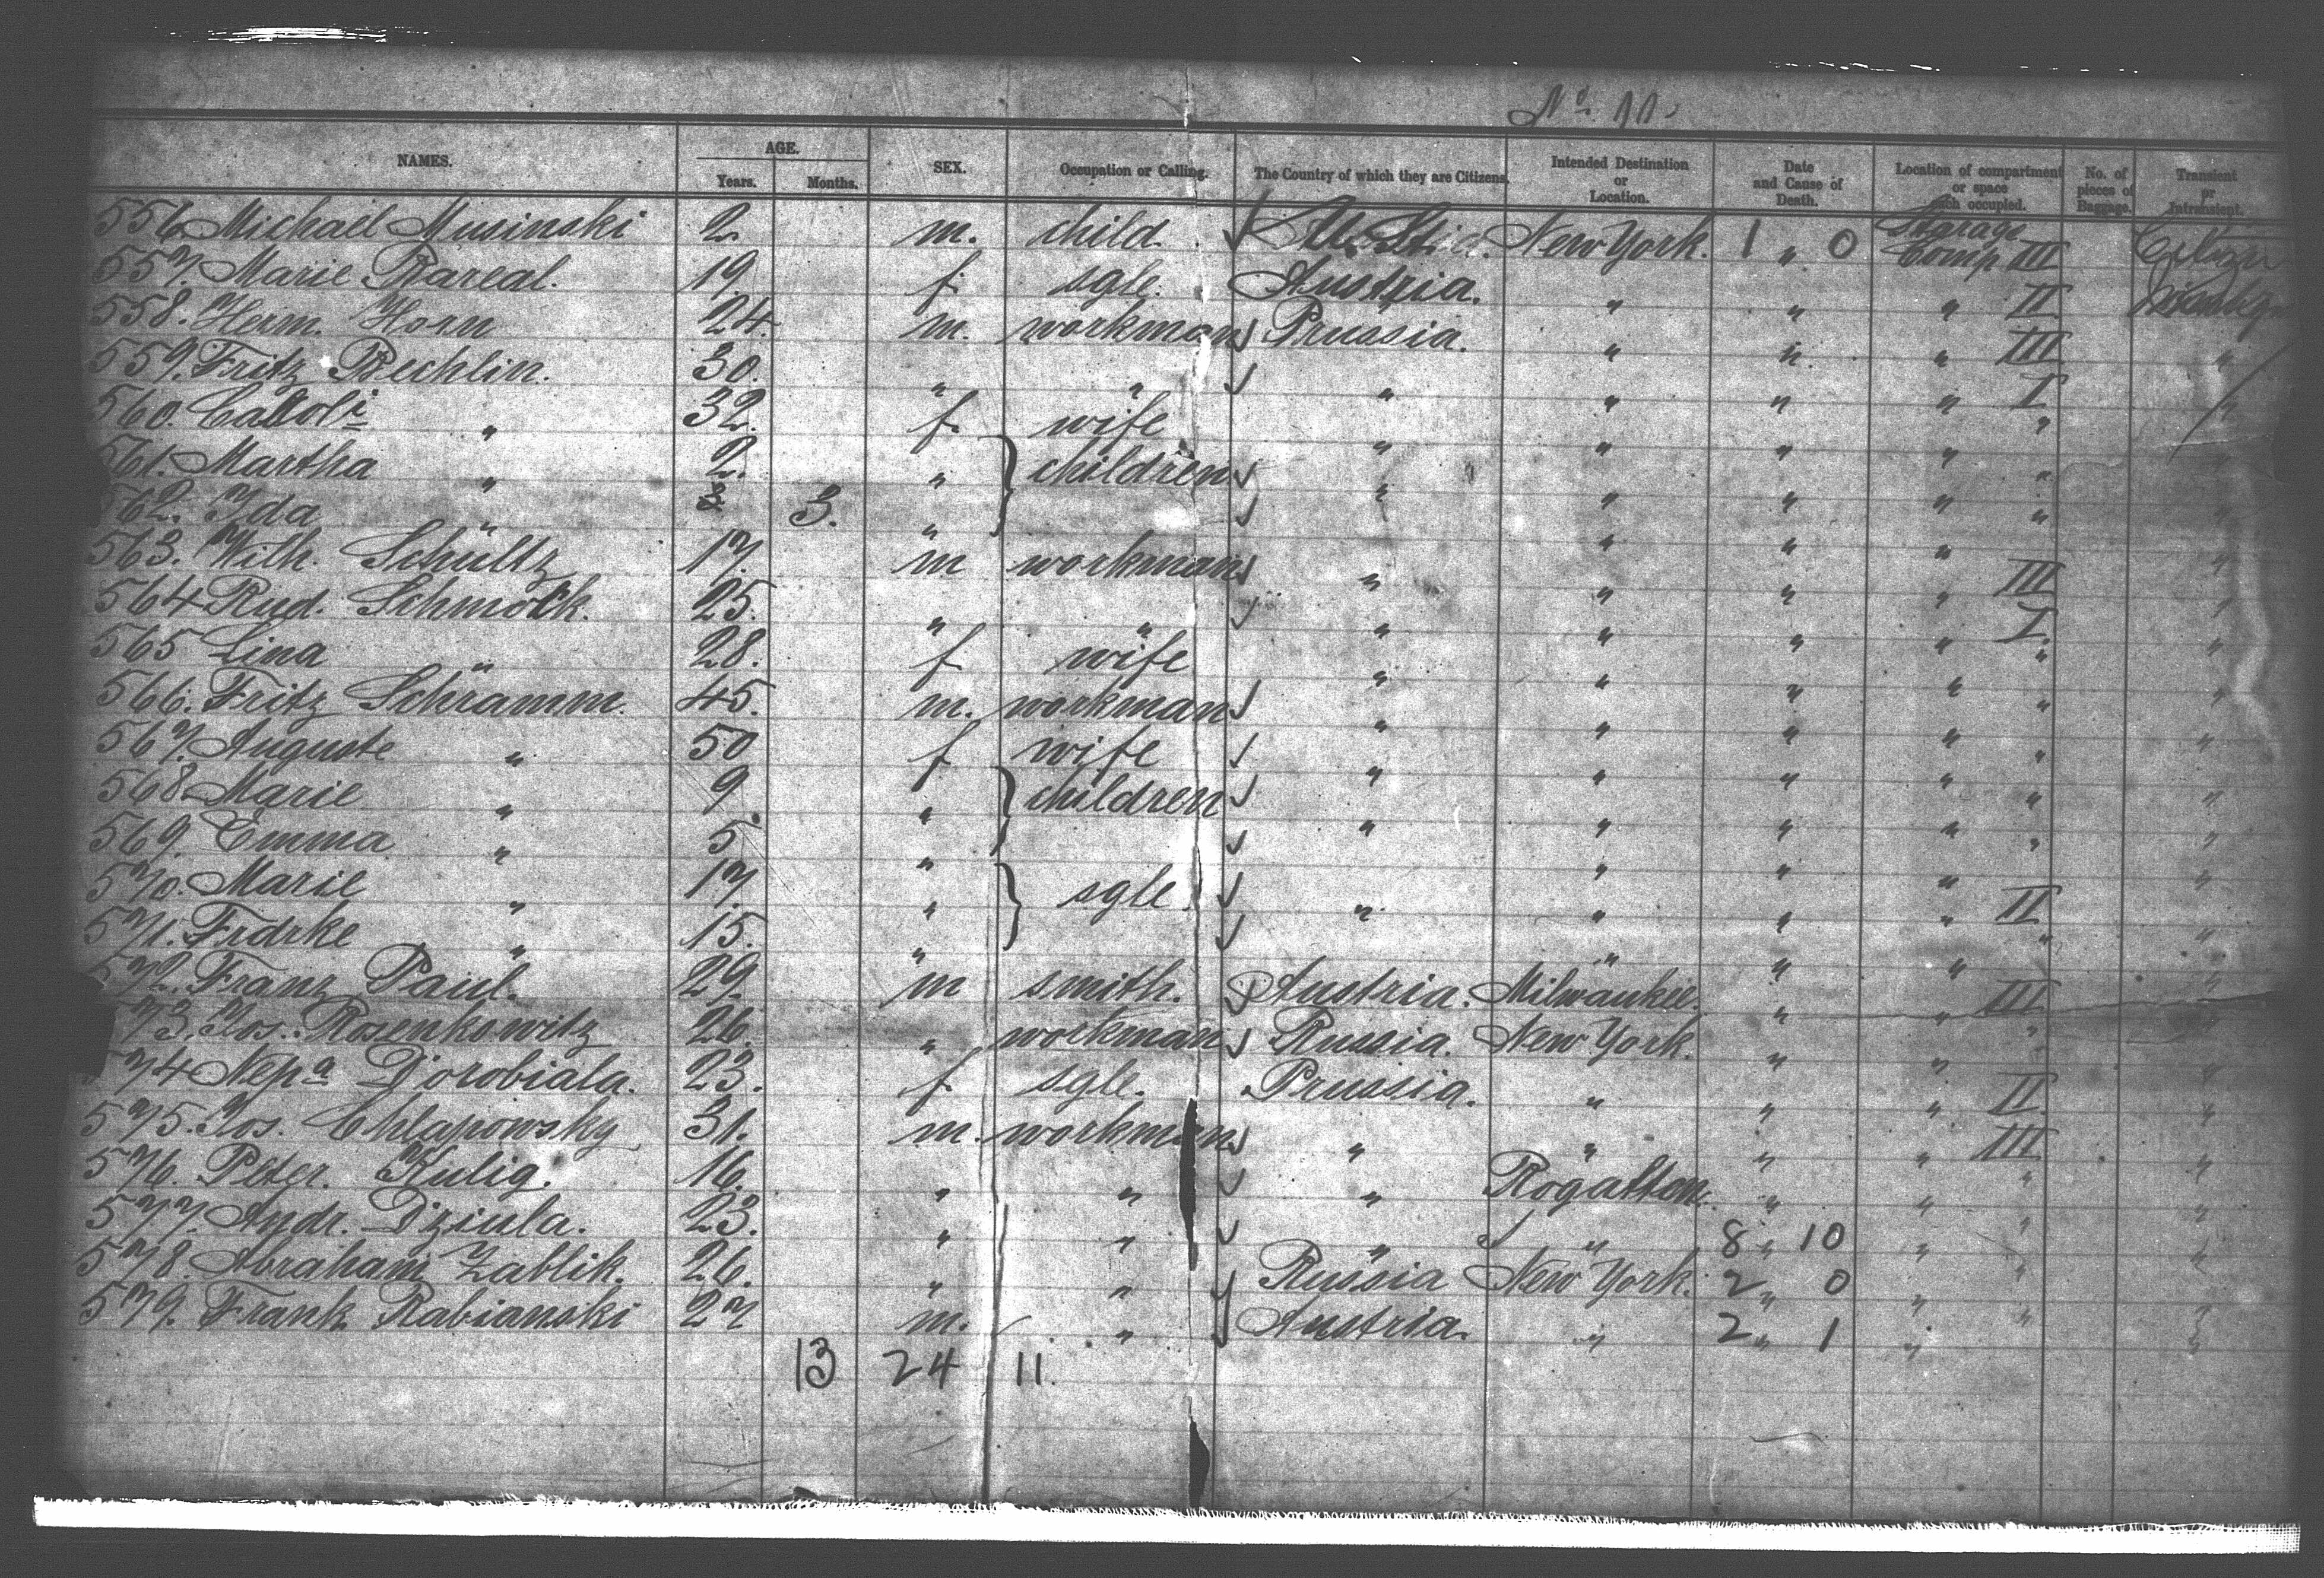 No 11.
NAMES. AGE. Years. Months. SEX. Occupation or Calling. The Country of which they are Citizens. Intended Destination or Location. Date and Cause of Death. Location of compartment or space each occupied. No. of pieces of Baggage. Transient or Intransient.
556. Michael Musinski 2. m. child. New York. 1 " 0 Comp III
557. Marie Rareal. 19. f. sgle. Austria. " " " II
558. Herm. Horn 24. m. workman Prussia. " " " III "
559. Fritz Rechlin. 30. " " " " " " I "
560. 32. f. wife " " " " "
561. Martha " 2. " children " " " " "
562. Ida " 3. " " " " " "
563. Wilh. Schültz 17. m workman " " " " III "
564 Rud. Schmock. 25. " " " " " " I. "
565 Lina " 28. f wife " " " " " "
566. Fritz Schramm. 45. m. workman " " " " " "
567. Auguste " 50 f wife " " " " " "
568. Marie " 9 " children " " " " " "
569. Emma " 5 " " " " " "
570. Marie " 17. " sgle. " " " " II "
571. Frdrke " 15. " " " " " "
572. Franz Paul. 29. m smith. Austria. Milwaukee. " " III "
73. Jos. Rosenkowitz 26. " workman Russia. New York. " " " "
574 Nepa Dorobiala. 23. f. sgle. Prussia. " " " II "
575. Jos. Chlapowsky 31. m. workman " " " " III "
576. Peter. Kulig. 16. " " " " " " "
577. Andr. Dziula. 23. " " " " 8 " 10 " " "
578. Abraham Zablik. 26. " " Russia New York. 2 " 0 " " "
579. Frank Rabianski 27 m. " Austria. " 2 " 1 " " "
13 24 11.